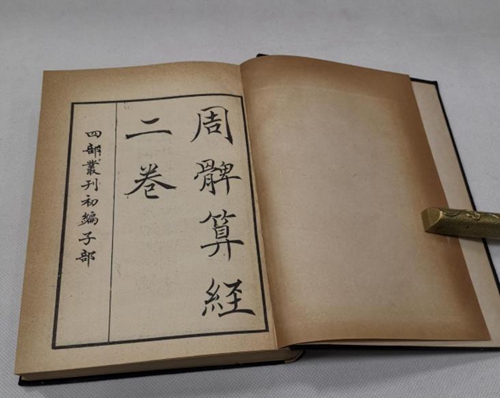 周髀算経
二卷
四部叢刊初編子部